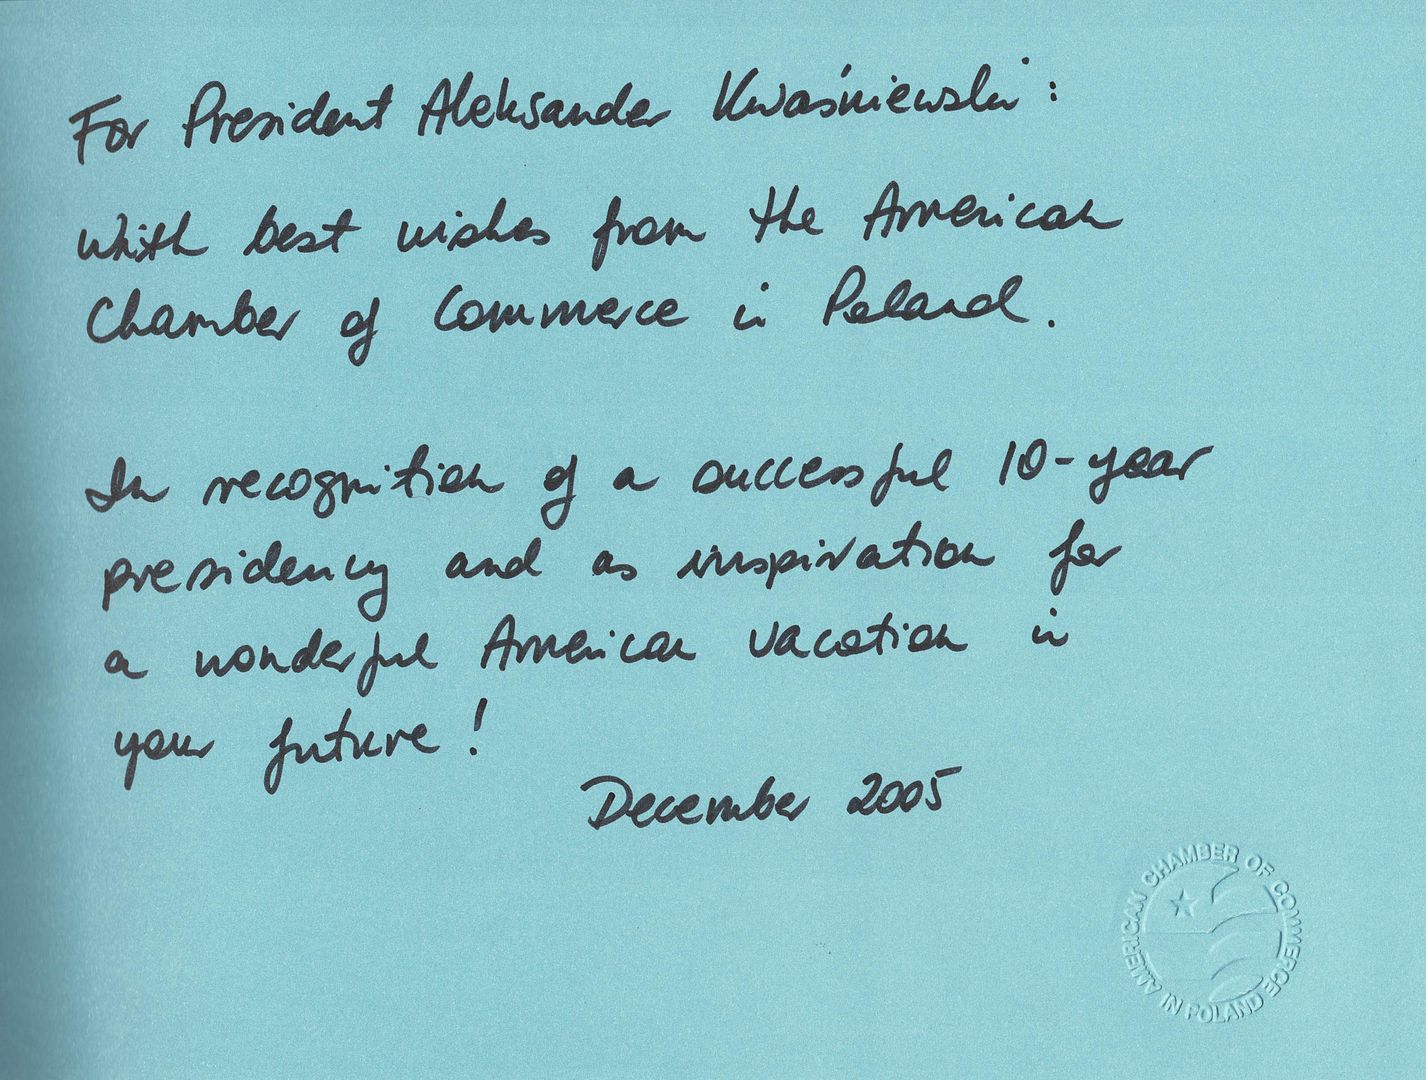 For President Aleksander Kwaśniewski:
With best wishes from the American
Chamber of Commerce in Poland.
In recognition of a successful 10-year
presidency and as inspiration for
a wonderful American vacation in
your future!
December 2005
AMERICAN CHAMBER OF COMMERCE IN POLAND